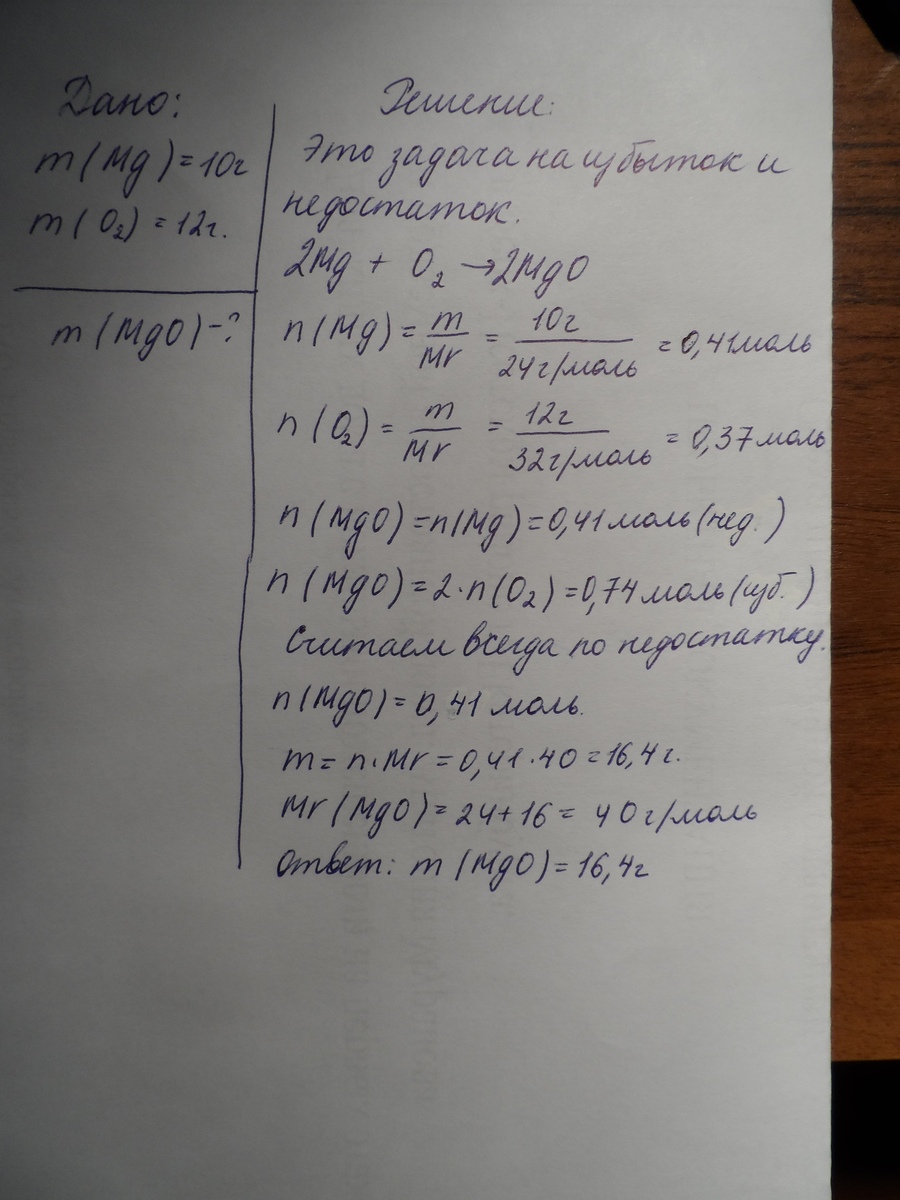 Дано:
m(Mg)=10г
m(O₂)=12г.
m(MgO)-?
Решение:
Это задача на избыток и
недостаток.
2Mg + O₂ → 2MgO
n(Mg) = m/Mr = 10г/24г/моль = 0,41моль
n(O₂) = m/Mr = 12г/32г/моль = 0,37моль
n(MgO)=n(Mg)=0,41моль(нед.)
n(MgO)=2·n(O₂)=0,74моль(изб.)
Считаем всегда по недостатку.
n(MgO)=0,41 моль.
m=n·Mr=0,41·40=16,4г.
Mr(MgO)=24+16=40г/моль
Ответ: m(MgO)=16,4г